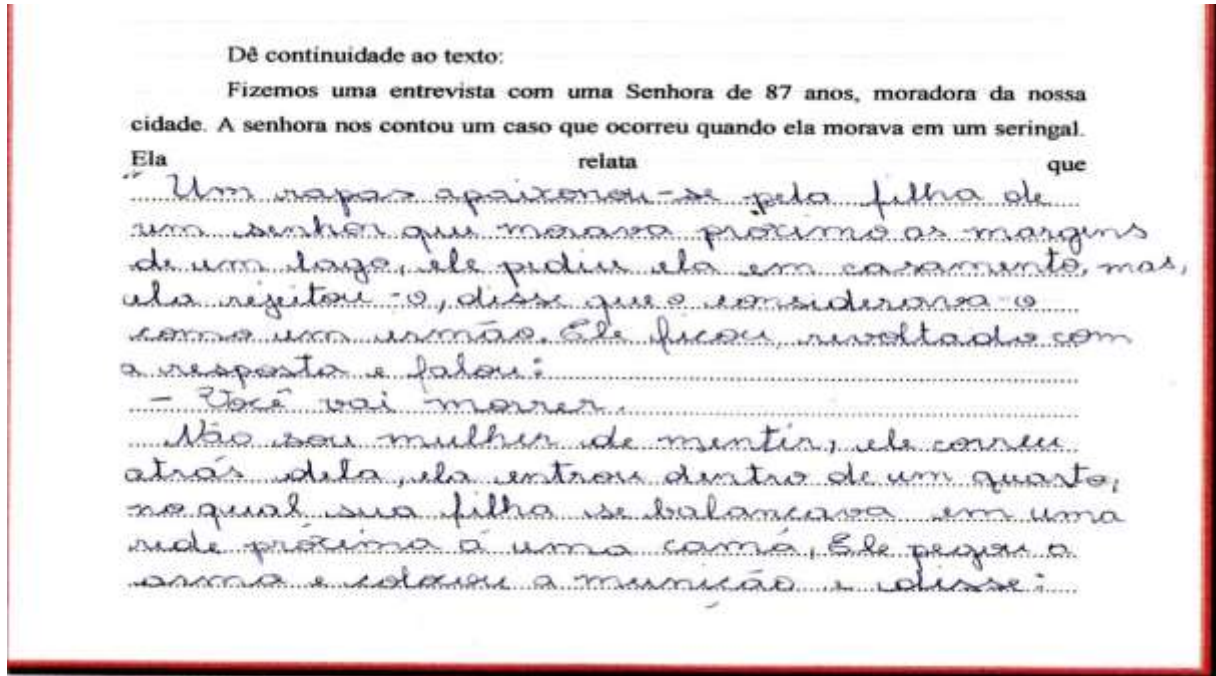 Dê continuidade ao texto:
Fizemos uma entrevista com uma Senhora de 87 anos, moradora da nossa
cidade. A senhora nos contou um caso que ocorreu quando ela morava em um seringal.
Ela relata que
" Um rapas apaixonou-se pela filha de
um senhor que morava próximo as margens
de um lago, ele pediu ela em casamento, mas,
ela rejeitou -o, disse que o considerava-o
como um irmão. Ele ficou revoltado com
a resposta e falou:
- Você vai morrer.
Não sou mulher de mentir, ele correu
atrás dela, ela entrou dentro de um quarto,
no qual sua filha se balancava em uma
rede próxima à uma cama, Ele pegou a
arma e colocou a munição e disse: